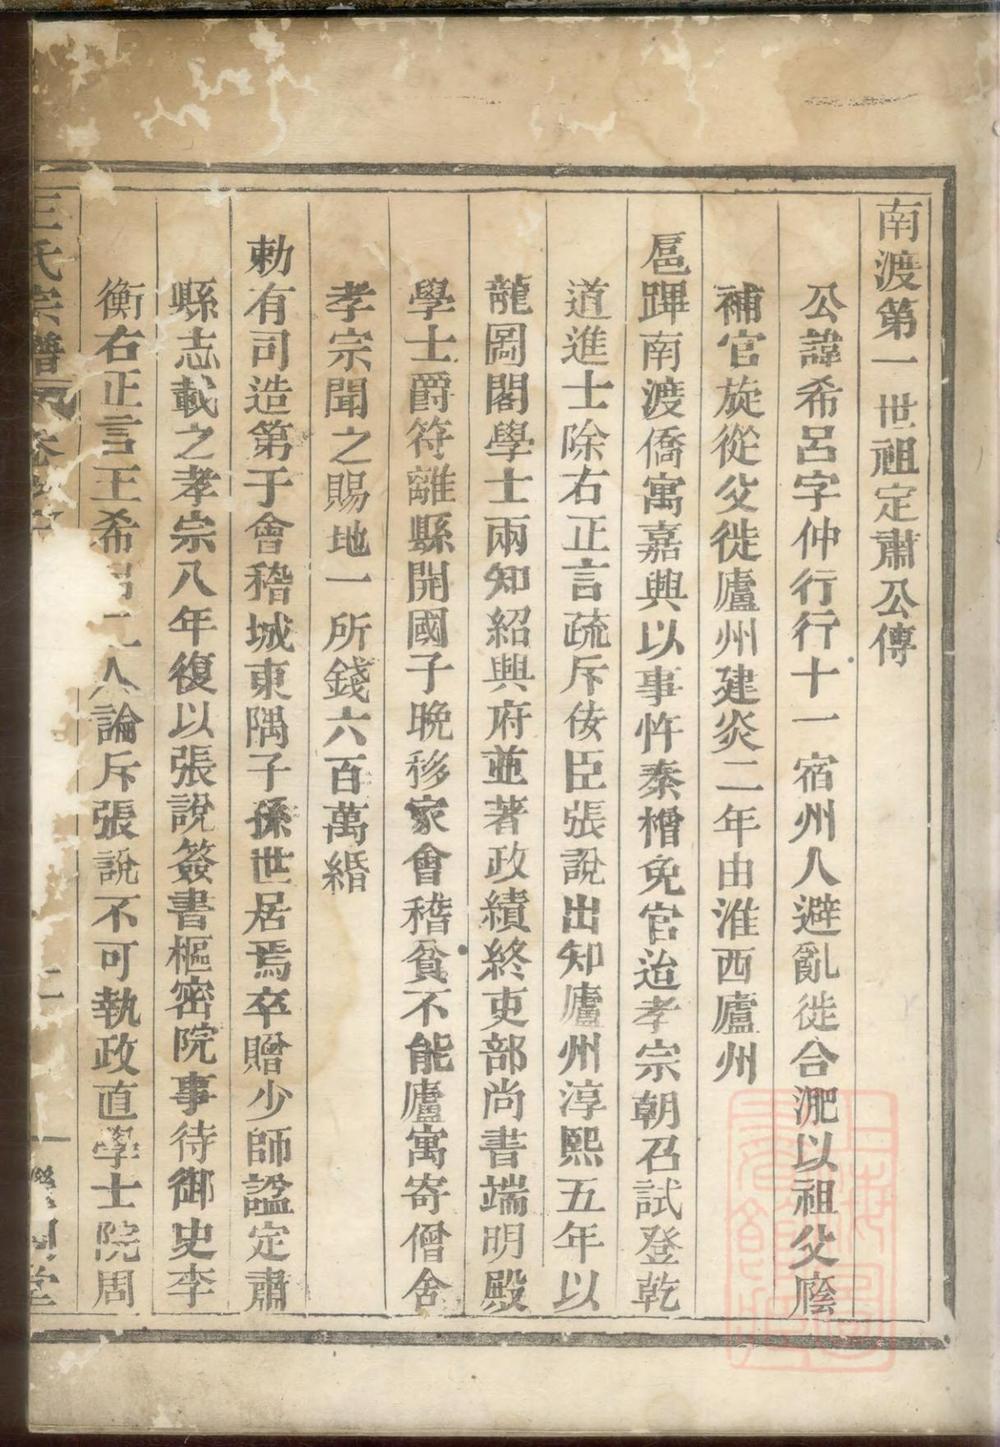 南渡第一世祖定肅公傳
公諱希呂字仲行行十一宿州人避亂徙合淝以祖父廕
補官旋從父徙廬州建炎二年由淮西廬州
扈蹕南渡僑寓嘉興以事忤秦檜免官迨孝宗朝召試登乾
道進士除右正言疏斥佞臣張說出知廬州淳熙五年以
龍啚閣學士兩知紹興府並著政績終吏部尚書端明殿
學士爵符離縣開國子晩移家會稽貧不能廬寓寄僧舍
孝宗聞之賜地一所錢六百萬緡
勅有司造第于會稽城東隅子孫世居焉卒贈少師諡定肅
縣志載之孝宗八年復以張說簽書樞密院事待御史李
衡右正言王希呂二人論斥張說不可執政直學士院周
王氏宗譜